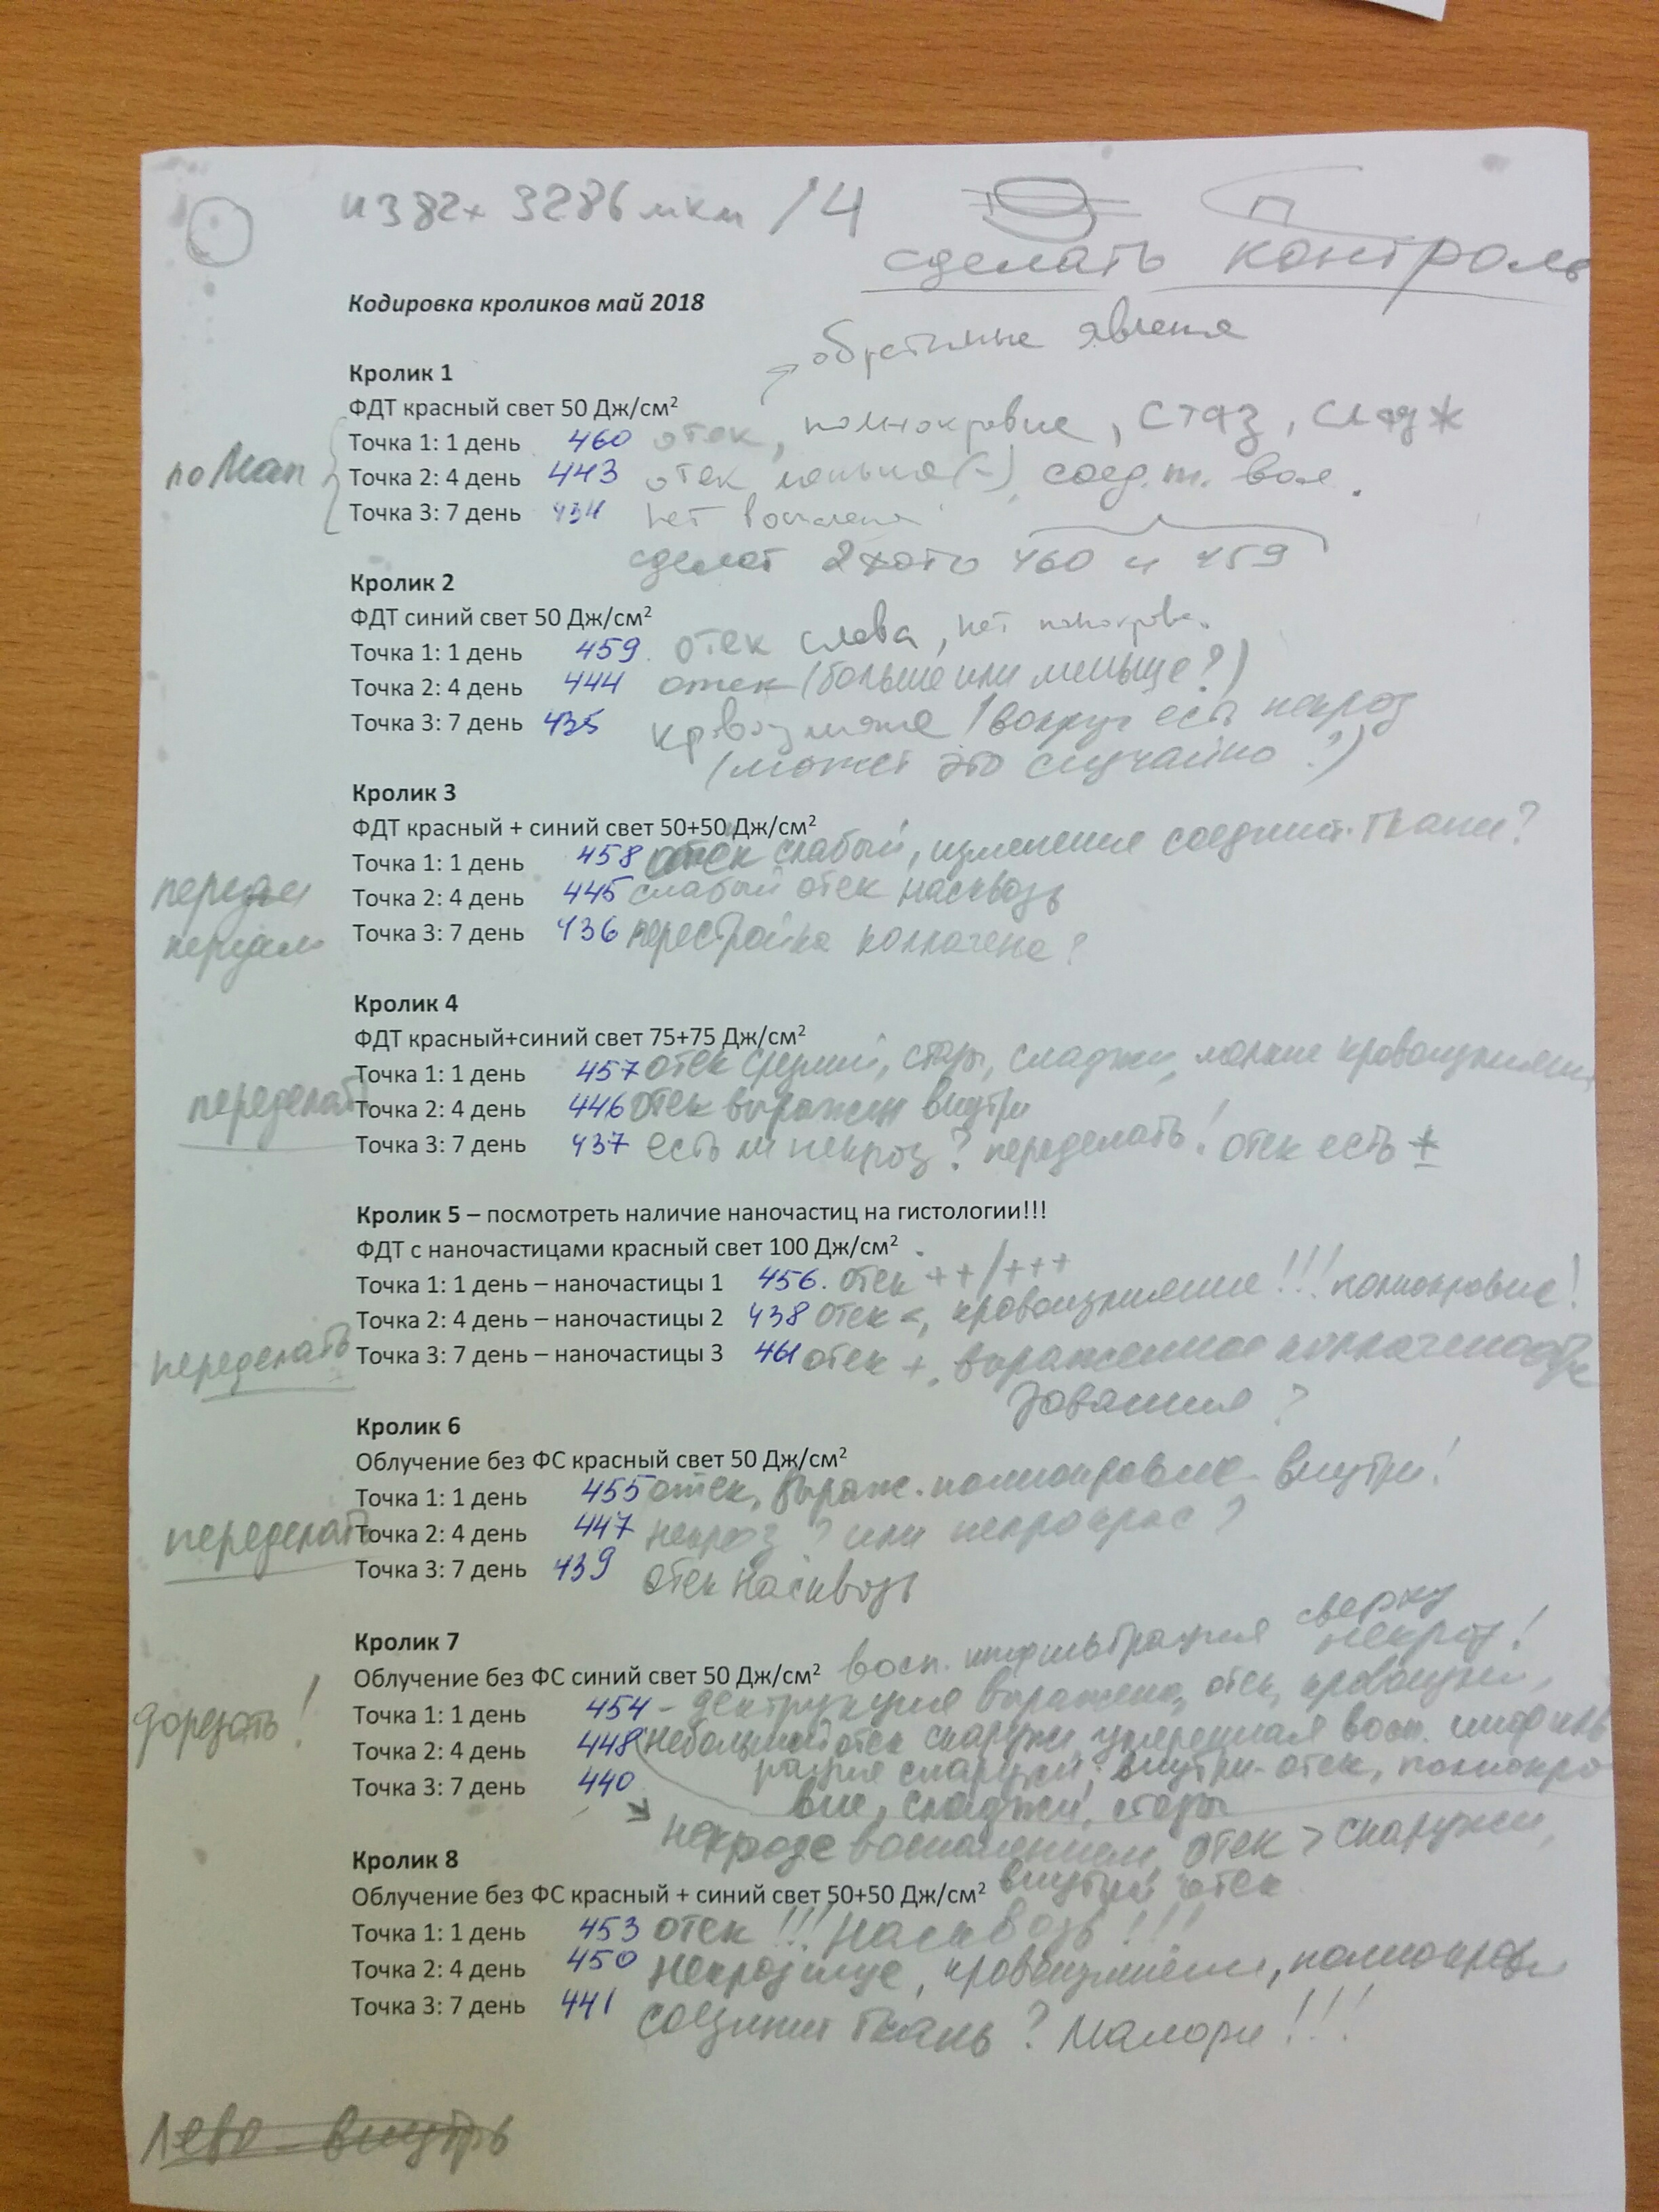 4382х 3286 мкм /4
сделать контроль
Кодировка кроликов май 2018
обратимые явления
Кролик 1
ФДТ красный свет 50 Дж/см²
Точка 1: 1 день 460 отек, полнокровие, стаз, сладж
по Мал
Точка 2: 4 день 443 отек меньше (-) соед. т. вол.
Точка 3: 7 день 434 нет воспаления
сделат 2 фото 460 и 459
Кролик 2
ФДТ синий свет 50 Дж/см²
Точка 1: 1 день 459. отек слева, нет полнокров.
Точка 2: 4 день 444 отек (больше или меньше?)
Точка 3: 7 день 435 кровоизлияние / вокруг есть некроз
(может это случайно?)
Кролик 3
ФДТ красный + синий свет 50+50 Дж/см²
Точка 1: 1 день 458 отек слабый, изменения соединит. ткани?
Точка 2: 4 день 445 слабый отек насквозь
Точка 3: 7 день 436 перестройка коллагена?
Кролик 4
ФДТ красный+синий свет 75+75 Дж/см²
Точка 1: 1 день 457 отек средний, стазы, сладжи, мелкие кровоизлияния
переделать
Точка 2: 4 день 446 отек выражен внутри
Точка 3: 7 день 437 есть ли некроз? переделать! отек есть ±
Кролик 5 – посмотреть наличие наночастиц на гистологии!!!
ФДТ с наночастицами красный свет 100 Дж/см²
Точка 1: 1 день – наночастицы 1 456. отек ++/+++
Точка 2: 4 день – наночастицы 2 438 отек <, кровоизлияние!!! полнокровие!
переделать
Точка 3: 7 день – наночастицы 3 461 отек +, выраженное коллагенообра
зования?
Кролик 6
Облучение без ФС красный свет 50 Дж/см²
Точка 1: 1 день 455 отек, выраж. полнокровие внутри!
переделать
Точка 2: 4 день 447 некроз? или непрокрас?
Точка 3: 7 день 439 отек насквозь
Кролик 7
сверху
некроз!
Облучение без ФС синий свет 50 Дж/см² восп. инфильтрация
дорезать!
Точка 1: 1 день 454 – деструкция выражена, отек, кровоизли,
Точка 2: 4 день 448 небольшой отек снаружи, умеренная восп. инфильт
рация снаружи; внутри - отек, полнокро
Точка 3: 7 день 440
вие, сладжи, стазы
некроз с воспалением, отек > снаружи,
внутри отек
Кролик 8
Облучение без ФС красный + синий свет 50+50 Дж/см²
Точка 1: 1 день 453 отек!!! Насквозь!!!
Точка 2: 4 день 450 Некрозище, кровоизлияния, полнокров
Точка 3: 7 день 441 соединит ткань? Маллори!!!
Лево - внутрь